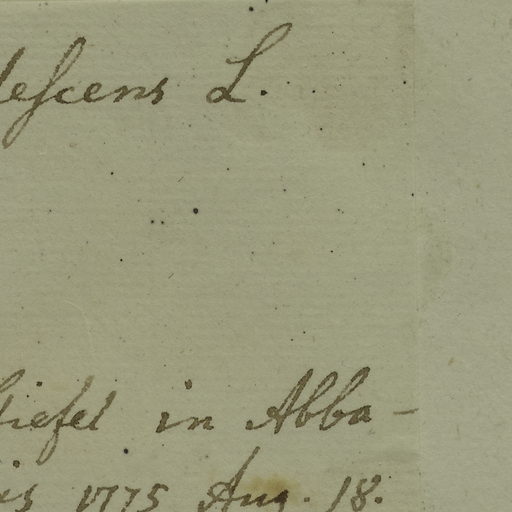 lescens L.
Stiefel in Abba-
is 1775 Aug. 18.